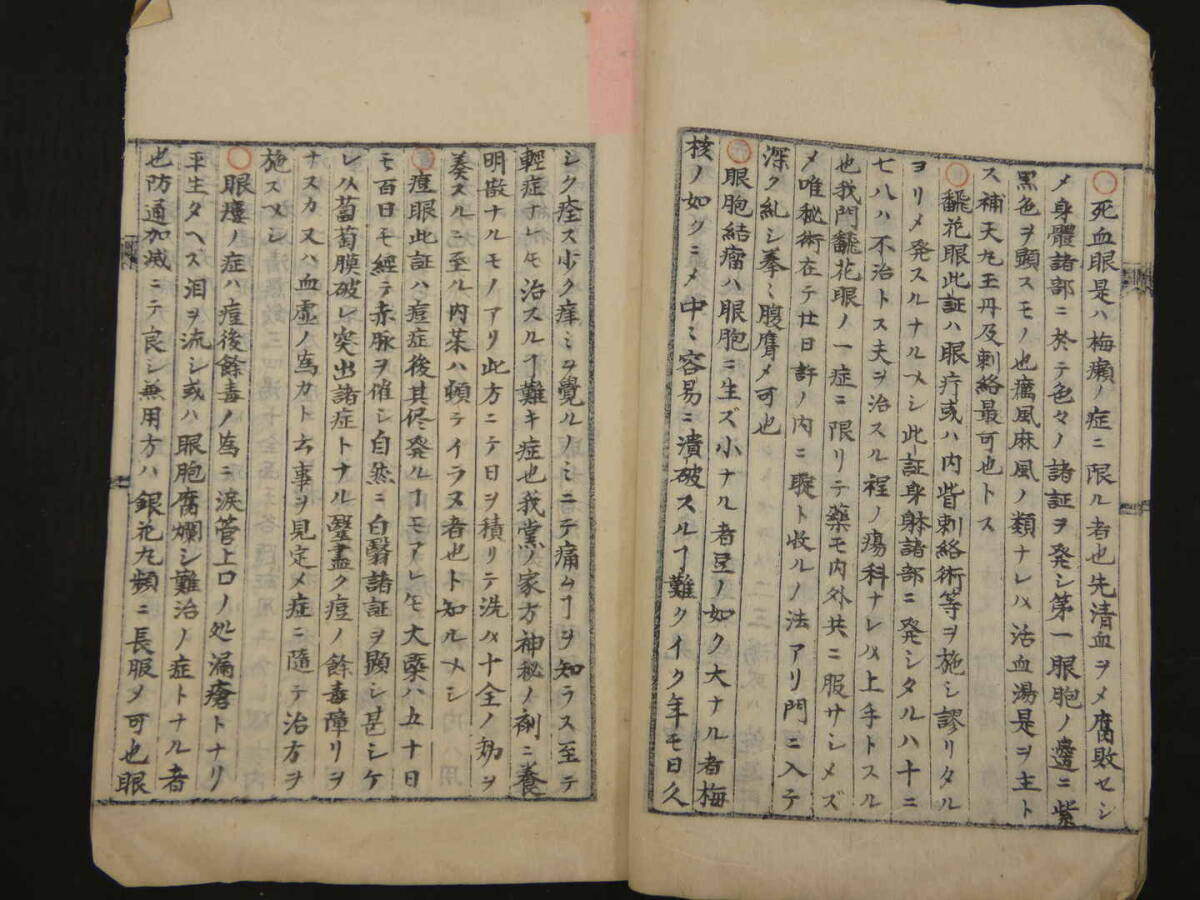 〇死血眼是ハ梅癩ノ症ニ限ル者也先清血ヲメ腐敗セシ
メ身體諸部ニ於テ色々ノ諸証ヲ発シ第一眼胞ノ邉ニ紫
黒色ヲ顕スモノ也癘風麻風ノ類ナレハ活血湯是ヲ主ト
ス補天丸王丹及刺絡最可也トス
〇飜花眼此証ハ眼疔或ハ内眥刺絡術等ヲ施シ謬リタル
ヨリメ発スルナルヘシ此証身躰諸部ニ発シタルハ十ニ
七八ハ不治トス夫ヲ治スル程ノ瘍科ナレハ上手トスル
也我門飜花眼ノ一症ニ限リテ藥モ内外共ニ服サシメズ
メ唯秘術在テ廿日許ノ内ニ聢ト收ルノ法アリ門ニ入テ
深ク糺シ拳ミ腹膺メ可也
〇眼胞結瘤ハ眼胞ニ生ズ小ナル者豆ノ如ク大ナル者梅
核ノ如クニメ中ミ容易ニ潰破スルヿ難クイク年モ日久
シク痊ス少ク痒ミヲ覺ルノミニテ痛ムヿヲ知ラス至テ
輕症ナレ𪜈治スルヿ難キ症也我黨ハ家方神秘ノ剤ニ養
明散ナルモノアリ此方ニテ日ヲ積リテ洗ハ十全ノ効ヲ
奏スルニ至ル内茱ハ頓テイラヌ者也ト知ルヘシ
〇痘眼此証ハ痘症後其侭発ルヿモアレ𪜈大藥ハ五十日
モ百日モ經テ赤脉ヲ催シ自然ニ白翳諸証ヲ顕シ甚シケ
レハ萄萄膜破レ突出諸症トナル翳盡ク痘ノ餘毒障リヲ
ナスカ又ハ血虚ノ為カト云事ヲ見定メ症ニ隨テ治方ヲ
施スヘシ
〇眼瘻ノ症ハ痘後餘毒ノ為ニ涙管上口ノ処漏瘡トナリ
平生タヘス泪ヲ流シ或ハ眼胞腐爛シ難治ノ症トナル者
也防通加减ニテ良シ無用方ハ銀花丸類ニ長服メ可也眼